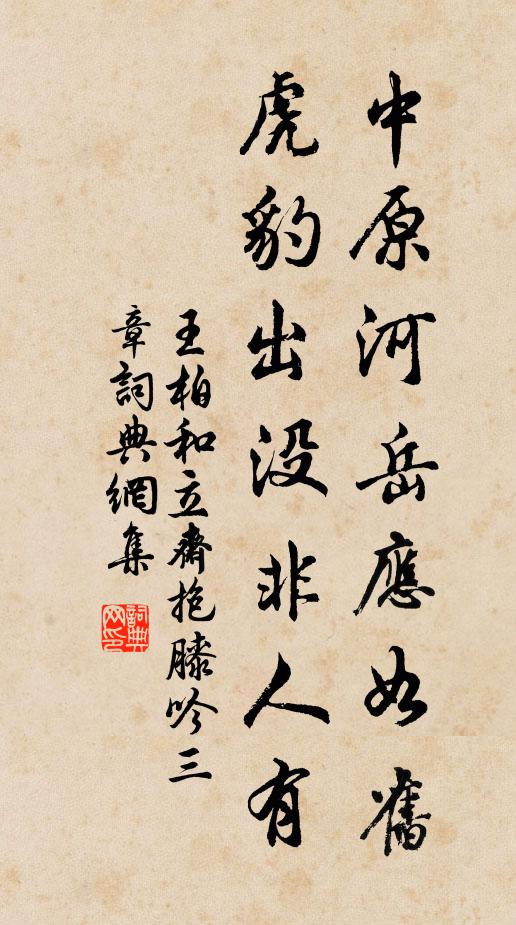 中原河岳應如舊
虎豹出没非人有
王柏和立齋抱膝吟三
章詞典網集
詞典
网印